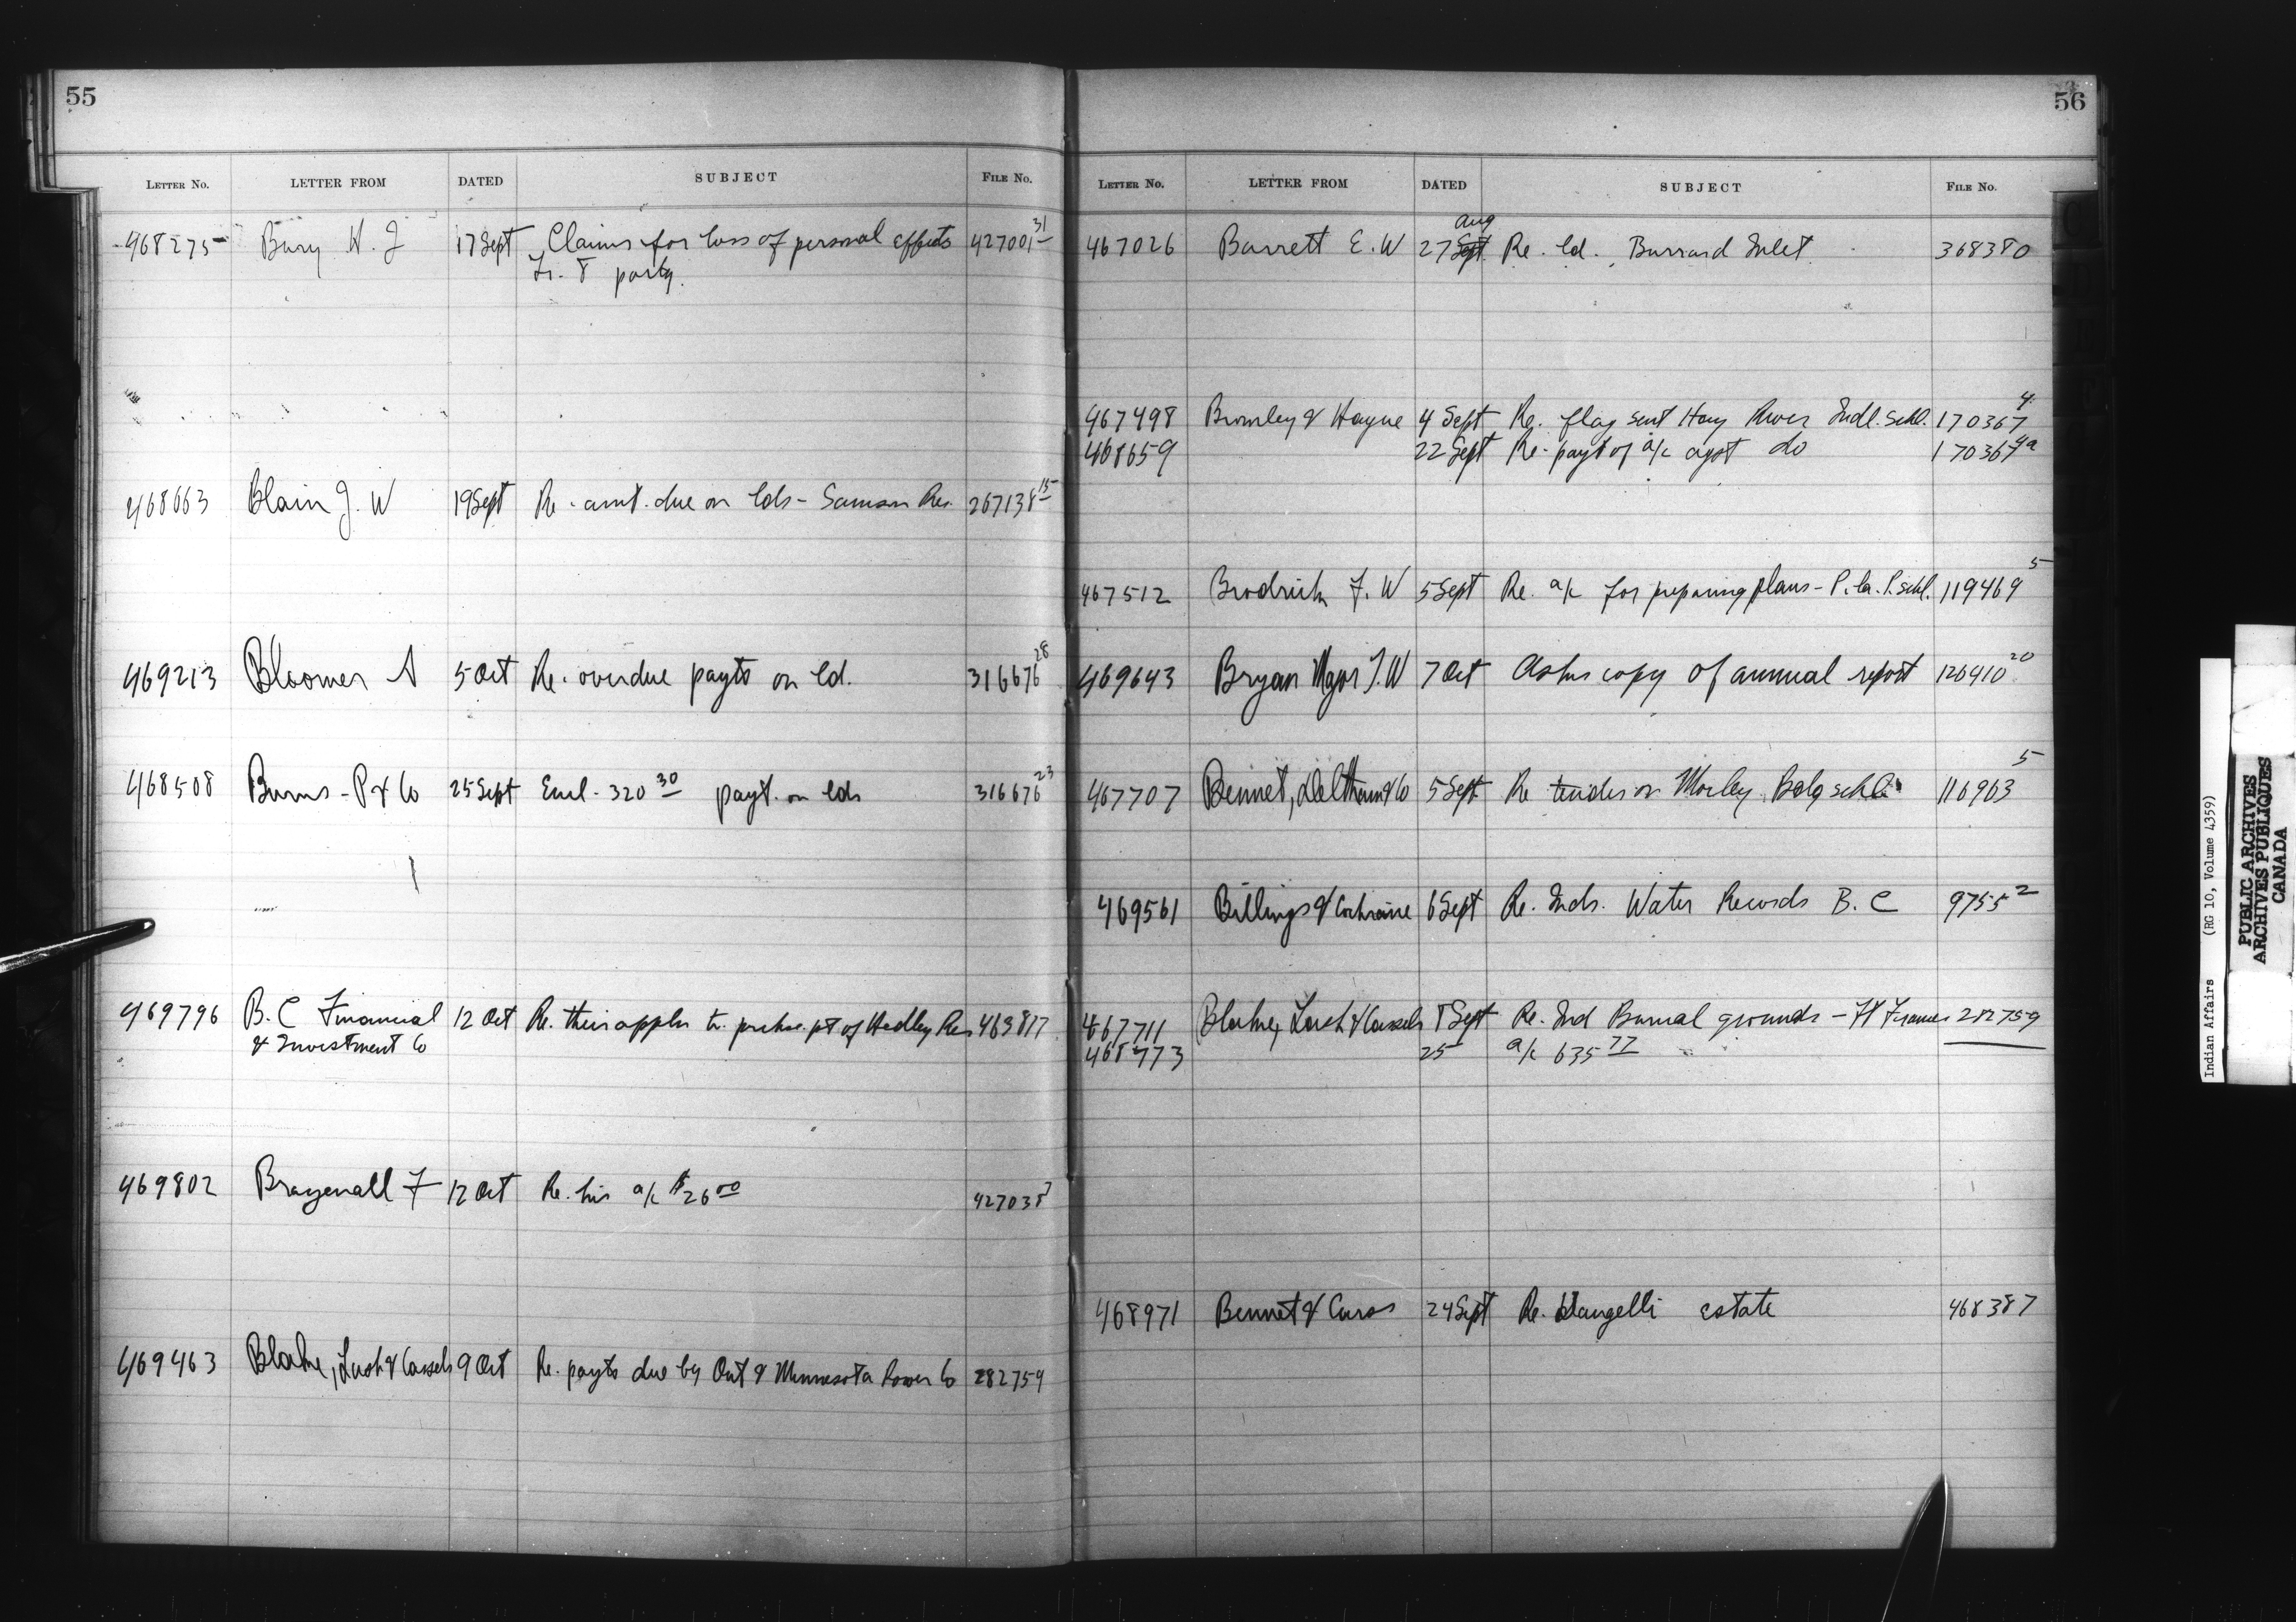 55
LETTER No. LETTER FROM DATED SUBJECT FILE No.
468275 Bury H. J 17 Sept Claims for loss of personal effects 427001 31
Tr. 8 party.
468663 Blain J. W 19 Sept Re. amt. due on lds - Samson Res. 267138 15
469213 Bloomer A 5 Oct Re. overdue payts on ld. 316676 28
468508 Burns - P & Co 25 Sept Encl. 320 30 payt. on lds 316676 23
469796 B. C Financial 12 Oct Re. their appln to purhse. pt of Hedley Res 469817
& Investment Co
469802 F 12 Oct Re. his a/c $26 00 427038 7
469463 Blake, Lash & Cassels 9 Oct Re. payts due by Ont & Minnesota Power Co 282759
56
LETTER No. LETTER FROM DATED SUBJECT FILE No.
Aug
467026 Barrett E. W 27 Sept Re. ld. Burrard Inlet 368380
467498 Bromley & Hague 4 Sept Re. flag sent Hay River Indl. Schl. 170367 4
468659 22 Sept Re. payt of a/c agst do 170367 4a
467512 Brodrick F. W 5 Sept Re. a/c for preparing plans - P. la. P. schl. 119469 5
469643 Bryan Mgor J. W 7 Oct Asks copy of annual report 126410 20
467707 Bennet, & Co 5 Sept Re tender on Morley Bdg schl. 116963 5
469561 Billings & Cochrane 6 Sept Re. Inds. Water Records B. C 9755 2
467711 Blake, Lash & Cassels 8 Sept Re. Ind Burial grounds - Ft Frances 282759
468773 25 a/c 635 77
468971 Bennet & 24 Sept Re. estate 468387
Indian Affairs (RG 10, Volume 4359)
PUBLIC ARCHIVES
ARCHIVES PUBLIQUES
CANADA